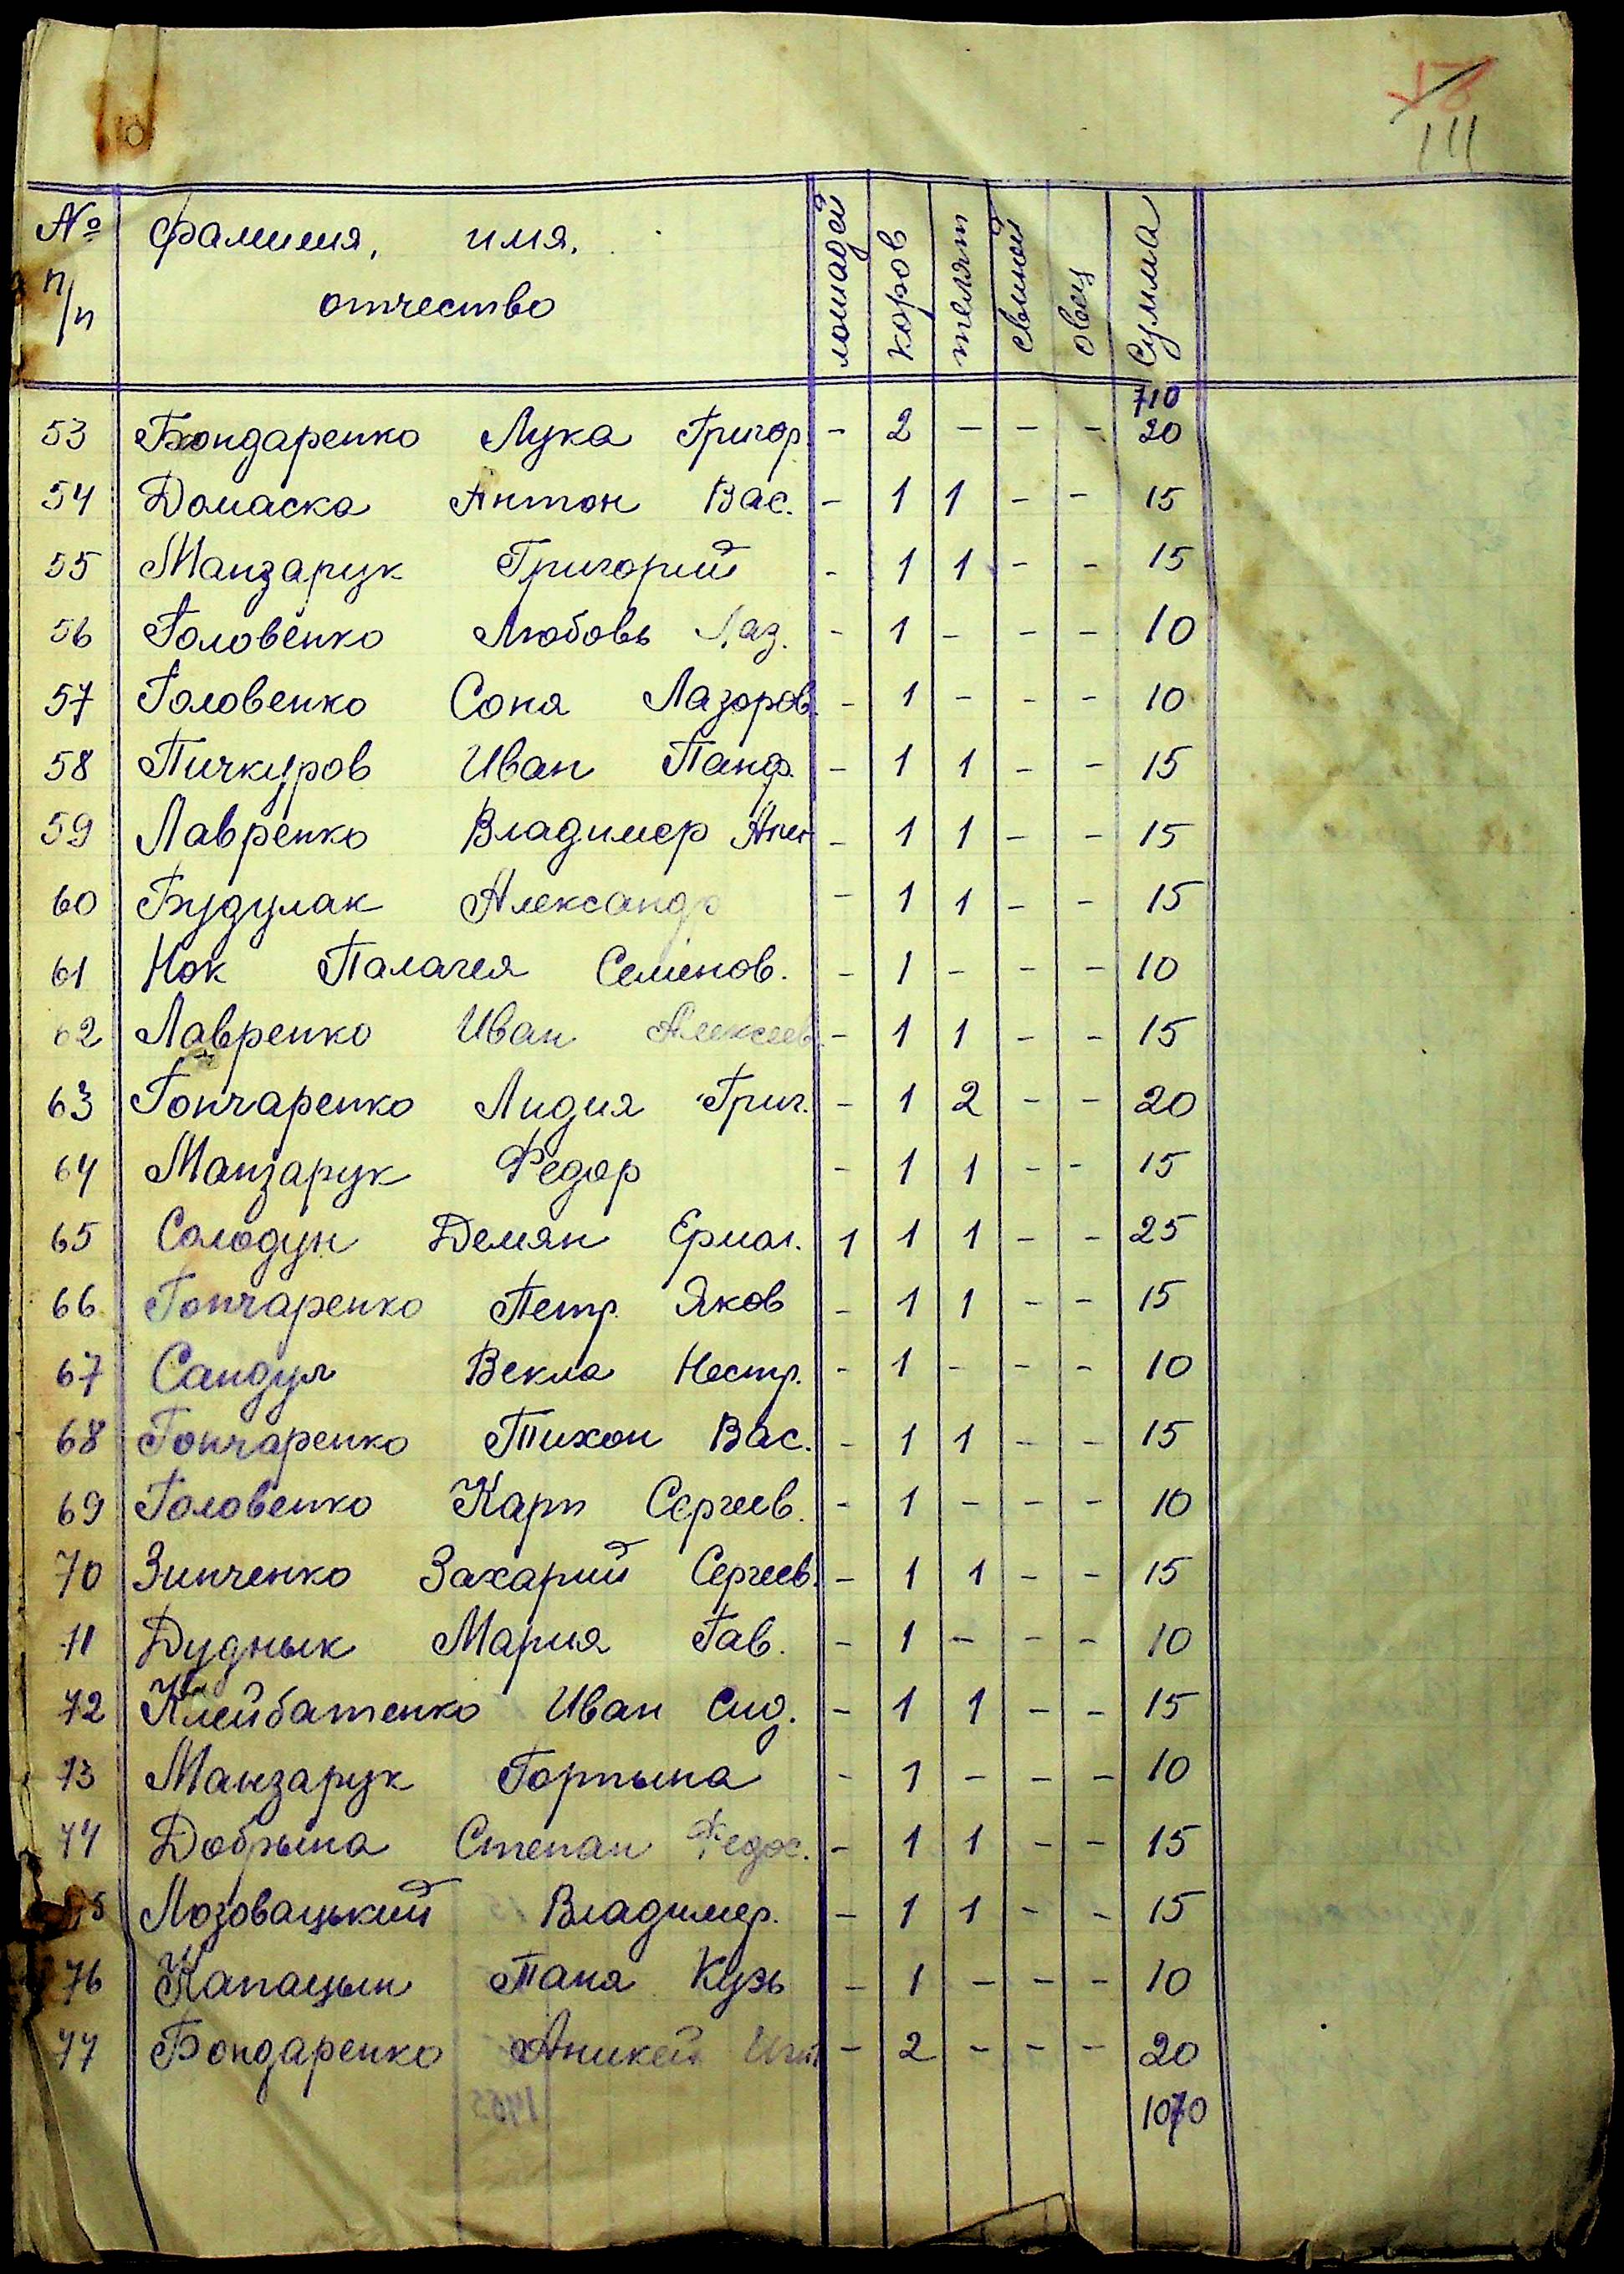 111
№ п/п фамилия, имя, отчество лошадей коров телят свиней овец Сумма
710
53 Бондаренко Лука Григор. - 2 - - - 20
54 Домаска Антон Вас. - 1 1 - - 15
55 Манзарук Григорий - 1 1 - - 15
56 Головенко Любовь Лаз. - 1 - - - 10
57 Головенко Соня Лазоров. - 1 - - - 10
58 Пичкуров Иван Панф. - 1 1 - - 15
59 Лавренко Владимер - 1 1 - - 15
60 Будулак Александр - 1 1 - - 15
61 Нок Палагея Семёнов. - 1 - - - 10
62 Лавренко Иван Алексеев. - 1 1 - - 15
63 Гончаренко Лидия Григ. - 1 2 - - 20
64 Манзарук Федор - 1 1 - - 15
65 Солодун Демян Ермол. 1 1 1 - - 25
66 Гончаренко Петр. Яков - 1 1 - - 15
67 Сандул Векла Нестр. - 1 - - - 10
68 Гончаренко Тихон Вас. - 1 1 - - 15
69 Головенко Карп Сергеев. - 1 - - - 10
70 Зинченко Захарий Сергеев. - 1 1 - - 15
71 Дуднык Мария Гав. - 1 - - - 10
72 Клейбатенко Иван Сид. - 1 1 - - 15
73 Манзарук Горпына - 1 - - - 10
74 Добрына Степан Федос. - 1 1 - - 15
75 Лозовацький Владимер. - 1 1 - - 15
76 Капацын Таня Кузь - 1 - - - 10
77 Бондаренко Аникей - 2 - - - 20
1070